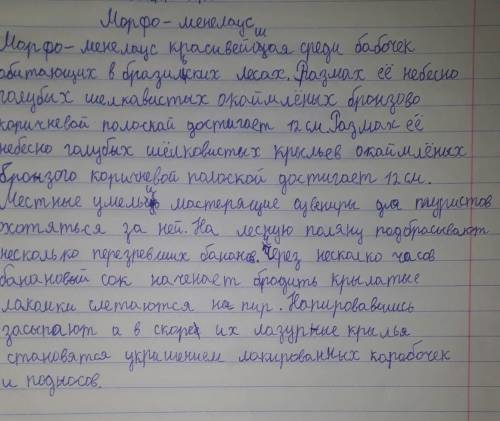 Морфо-менелаус
Морфо-менелаус красивейшая среди бабочек
обитающих в бразильских лесах. Размах её небесно
голубых шелкавистых окаймлёных бронзово
коричневой полоскай достигает 12 см. Размах её
небесно голубых шёлковистых крыльев окаймлёных
бронзого коричневой полоской достигает 12 см.
Местные умельцы мастерящие сувениры для туристов
охотяться за ней. На лесную поляну подбрасывают
несколько перезревших бананов. Через несколко часов
банановый сок наченает бродить крылатые
лакомки слетаются на пир. Напировавшись
засыпают а в скоре их лазурные крылья
становятся украшением лакированных карабочек
и подносов.